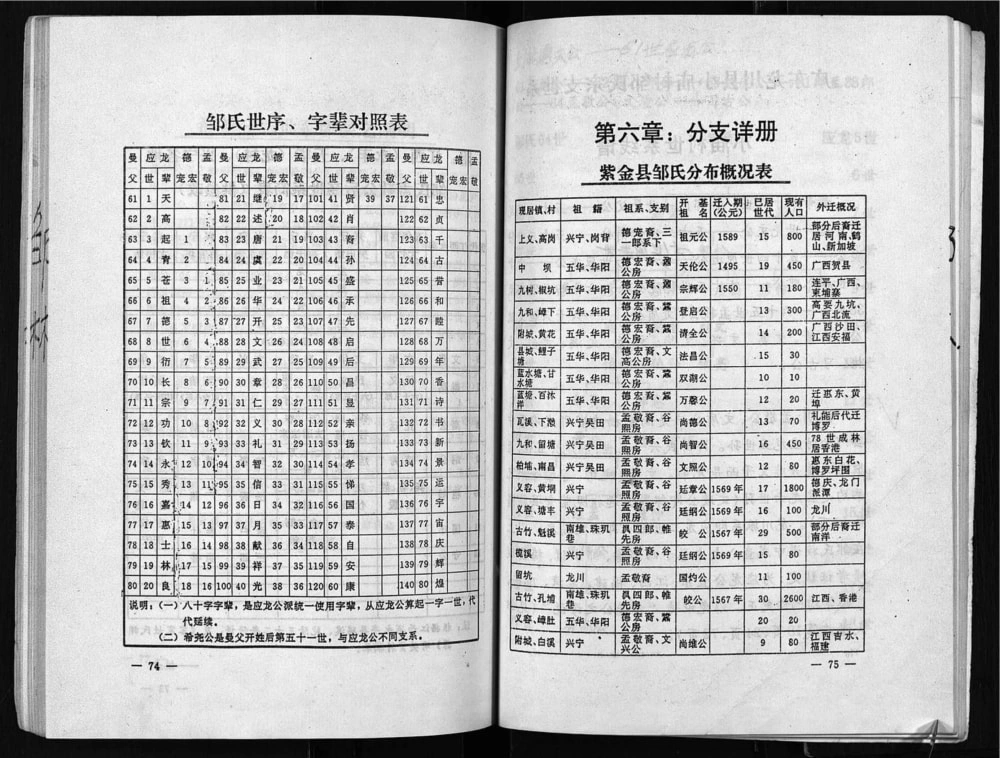 邹氏世序、字辈对照表
曼父 应龙世 辈 德宠 孟敬宏 曼父 应龙世 辈 德宠宏 孟敬 曼父 应龙世 辈 德宠宏 孟敬 曼父 应龙世 辈 德宠宏 孟敬
61 1 天 81 21 继 19 17 101 41 贤 39 37 121 61 忠
62 2 高 82 22 述 20 18 102 42 肖 122 62 贞
63 3 起 1 83 23 唐 21 19 103 43 裔 123 63 千
64 4 青 2 84 24 虞 22 20 104 44 孙 124 64 古
65 5 苍 3 1 85 25 业 23 21 105 45 盛 125 65 誉
66 6 祖 4 2 86 26 华 24 22 106 46 承 126 66 和
67 7 德 5 3 87 27 开 25 23 107 47 先 127 67 睦
68 8 世 6 4 88 28 文 26 24 108 48 启 128 68 万
69 9 衍 7 5 89 29 武 27 25 109 49 后 129 69 年
70 10 长 8 6 90 30 章 28 26 110 50 昌 130 70 香
71 11 宗 9 7 91 31 仁 29 27 111 51 显 131 71 诗
72 12 功 10 8 92 32 义 30 28 112 52 亲 132 72 书
73 13 钦 11 9 93 33 礼 31 29 113 53 扬 133 73 新
74 14 永 12 10 94 34 智 32 30 114 54 孝 134 74 景
75 15 秀 13 11 95 35 信 33 31 115 55 悌 135 75 运
76 16 嘉 14 12 96 36 日 34 32 116 56 国 136 76 宇
77 17 惠 15 13 97 37 月 35 33 117 57 泰 137 77 宙
78 18 士 16 14 98 38 献 36 34 118 58 自 138 78 庆
79 19 林 17 15 99 39 祥 37 35 119 59 安 139 79 辉
80 20 良 18 16 100 40 光 38 36 120 60 康 140 80 煌
说明:(一)八十字字辈,是应龙公派统一使用字辈,从应龙公算起一字一世,代
代延续。
(二)希尧公是曼父开姓后第五十一世,与应龙公不同支系。
— 74 —
第六章:分支详册
紫金县邹氏分布概况表
现居镇、村 祖籍 祖系、支别 开基祖名 迁入期(公元) 已居世代 现有人口 外迁概况
上义、高岗 兴宁、岗背 德宠裔、三一郎系下 祖元公 1589 15 800 部分后裔迁居河南、鹤山、新加坡
中坝 五华、华阳 德宏裔、公房 天伦公 1495 19 450 广西贺县
九树、椒坑 五华、华阳 德宏裔、公房 宗辉公 1550 11 180 连平、广西、柬埔寨
九和、嶂下 五华、华阳 德宏裔、公房 登启公 13 300 高要九坑、广西北流
附城、黄花 五华、华阳 德宏裔、公房 济全公 14 200 广西沙田、江西安福
县城、鲤子塘 五华、华阳 德宏裔、文高公房 法昌公 15 30
蓝水塘、甘水塘 五华、华阳 德宏裔、公房 双湖公 10 10
蓝塘、百沐洋 五华、华阳 德宏裔、公房 万馨公 12 20 迁惠东、黄埠
瓦溪、下濑 兴宁吴田 孟敬裔、谷熙房 尚德公 13 70 礼能后代迁博罗
九和、留塘 兴宁吴田 孟敬裔、谷熙房 尚智公 16 450 78世成林居香港
柏埔、南昌 兴宁吴田 孟敬裔、谷熙房 文照公 12 80 惠东白花、博罗坪围
义容、黄坰 兴宁 孟敬裔、谷熙房 廷章公 1569年 17 1800 德庆、龙门派潭
义容、塘丰 兴宁 孟敬裔、谷熙房 廷纲公 1569年 16 100 龙川
古竹、魁溪 南雄、珠玑巷 四郎、帷先房 皎公 1567年 29 500 部分后裔迁南洋
榄溪 兴宁 孟敬裔、谷熙房 廷纲公 1569年 15 80
留坑 龙川 孟敬裔 国灼公 11 100
古竹、孔埔 南雄、珠玑巷 四郎、帷先房 皎公 1567年 30 2600 江西、香港
义容、嶂肚 五华、华阳 德宏裔、公房 20 20
附城、白溪 兴宁 孟敬裔、文兴公 尚维公 9 80 江西吉水、福建
— 75 —